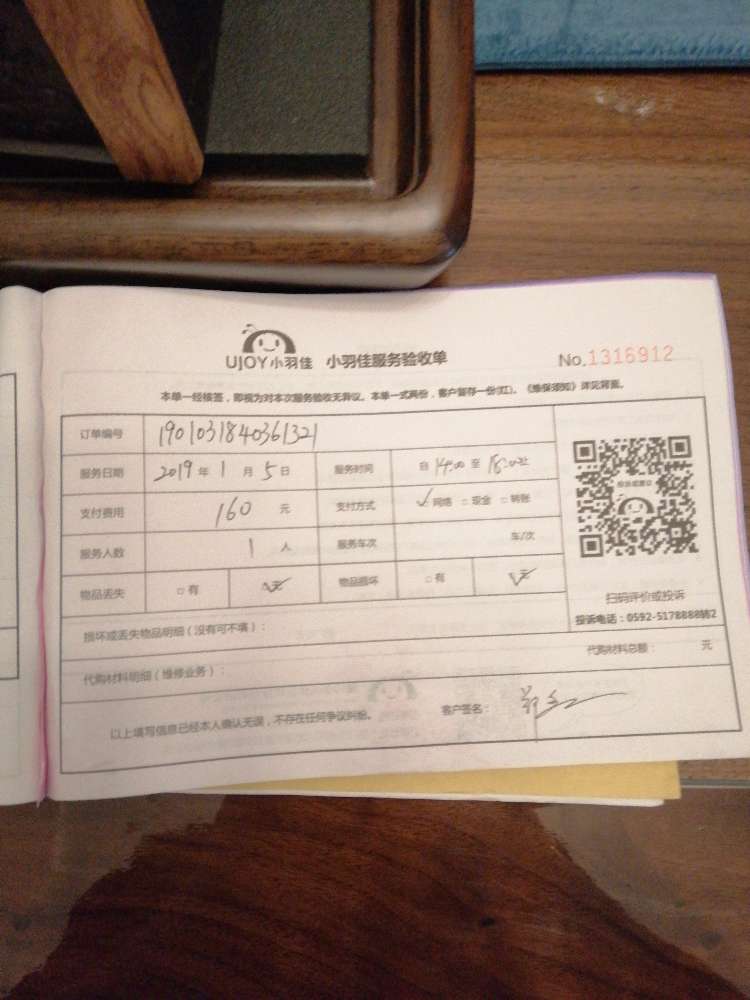 UJOY小羽佳 小羽佳服务验收单 No.1316912
本单一经核签，即视为对本次服务验收无异议。本单一式两份，客户暂存一份(红)。《维保须知》详见背面。
订单编号 1901031840361321
服务日期 2019年1月5日 服务时间 自14:00至18:00
支付费用 160元 支付方式 ✓网络 □现金 □转账
服务人数 1人 服务车次 车/次
物品丢失 □有 ✓无 物品损坏 □有 ✓无
扫码评价或投诉
投诉电话：0592-5178888转2
损坏或丢失物品明细（没有可不填）：
代购材料明细（维修业务）： 代购材料总额： 元
以上填写信息已经本人确认无误，不存在任何争议纠纷。 客户签名：